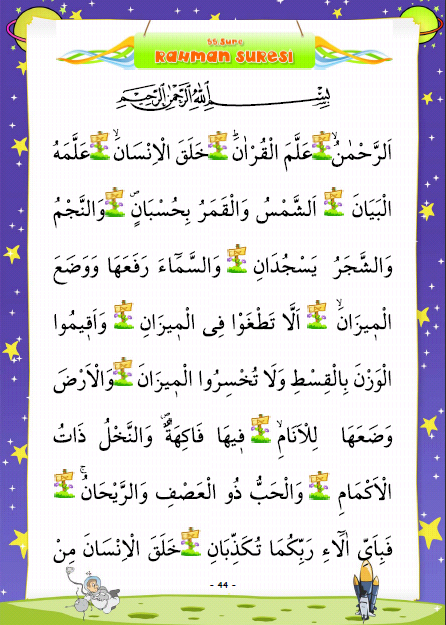 55.Sure
RAHMAN SURESI
بِسْمِ اللّٰهِ الرَّحْمٰنِ الرَّحٖيمِ
اَلرَّحْمٰنُۙ عَلَّمَ الْقُرْاٰنَۜ خَلَقَ الْاِنْسَانَۙ عَلَّمَهُ
الْبَيَانَ اَلشَّمْسُ وَالْقَمَرُ بِحُسْبَانٍۖ وَالنَّجْمُ
وَالشَّجَرُ يَسْجُدَانِ وَالسَّمَٓاءَ رَفَعَهَا وَوَضَعَ
الْمٖيزَانَۙ اَلَّا تَطْغَوْا فِى الْمٖيزَانِ وَاَقٖيمُوا
الْوَزْنَ بِالْقِسْطِ وَلَا تُخْسِرُوا الْمٖيزَانَ وَالْاَرْضَ
وَضَعَهَا لِلْاَنَامِۙ فٖيهَا فَاكِهَةٌۖ وَالنَّخْلُ ذَاتُ
الْاَكْمَامِ وَالْحَبُّ ذُو الْعَصْفِ وَالرَّيْحَانُۚ
فَبِاَىِّ اٰلَٓاءِ رَبِّكُمَا تُكَذِّبَانِ خَلَقَ الْاِنْسَانَ مِنْ
- 44 -